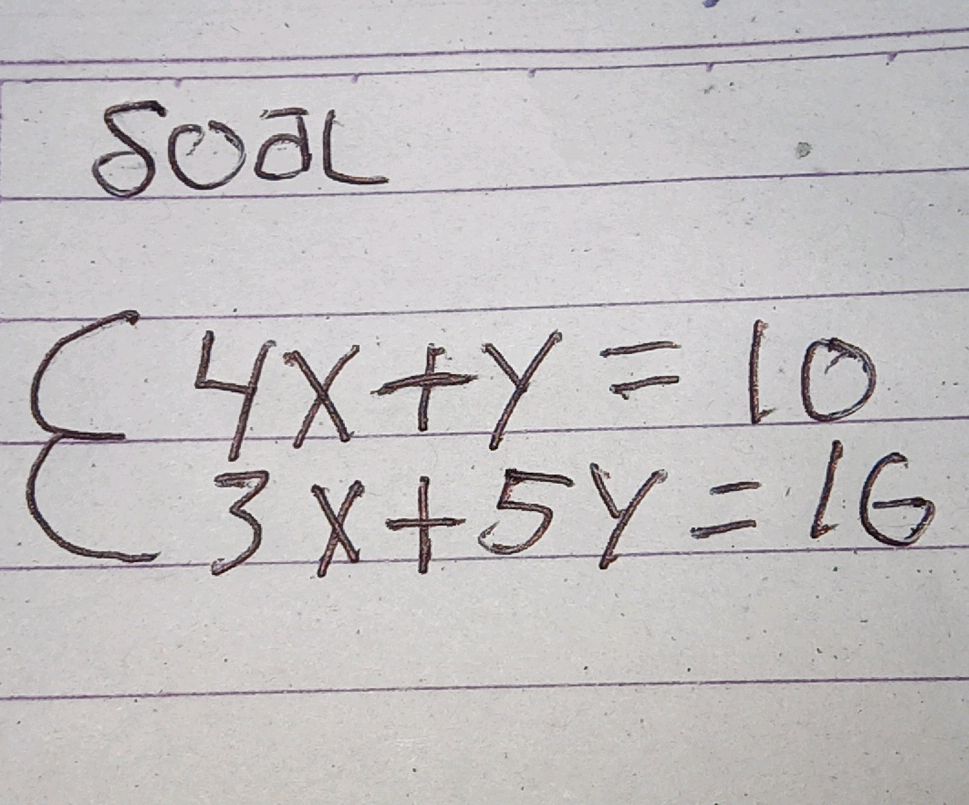 Soal
4x+y=10
3x+5y=16